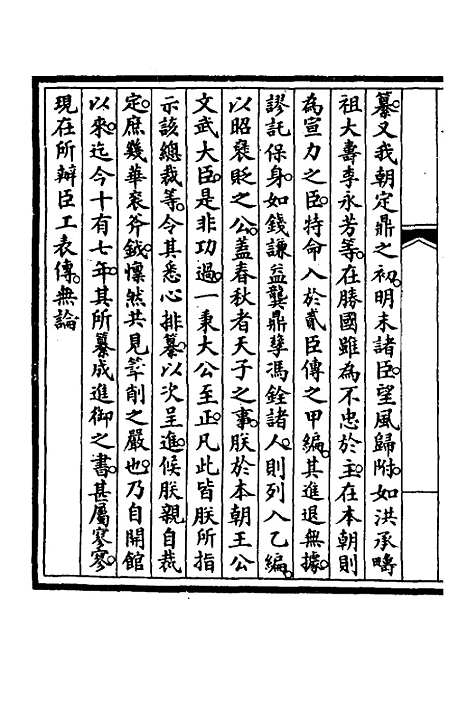 纂又我朝定鼎之初明末諸臣望風歸附如洪承疇
祖大壽李永芳等在勝國雖為不忠於主在本朝則
為宣力之臣特命入於貳臣傳之甲編其進退無據
謬託保身如錢謙益龔鼎孳馮銓諸人則列入乙編
以昭褒貶之公蓋春秋者天子之事朕於本朝王公
文武大臣是非功過一秉大公至正凡此皆朕所指
示該總裁等令其悉心排纂以次呈進候朕親自裁
定庶幾華衮斧鉞懍然共見筆削之嚴也乃自開館
以來迄今十有七年其所纂成進御之書甚屬寥寥
現在所辦臣工表傳無論